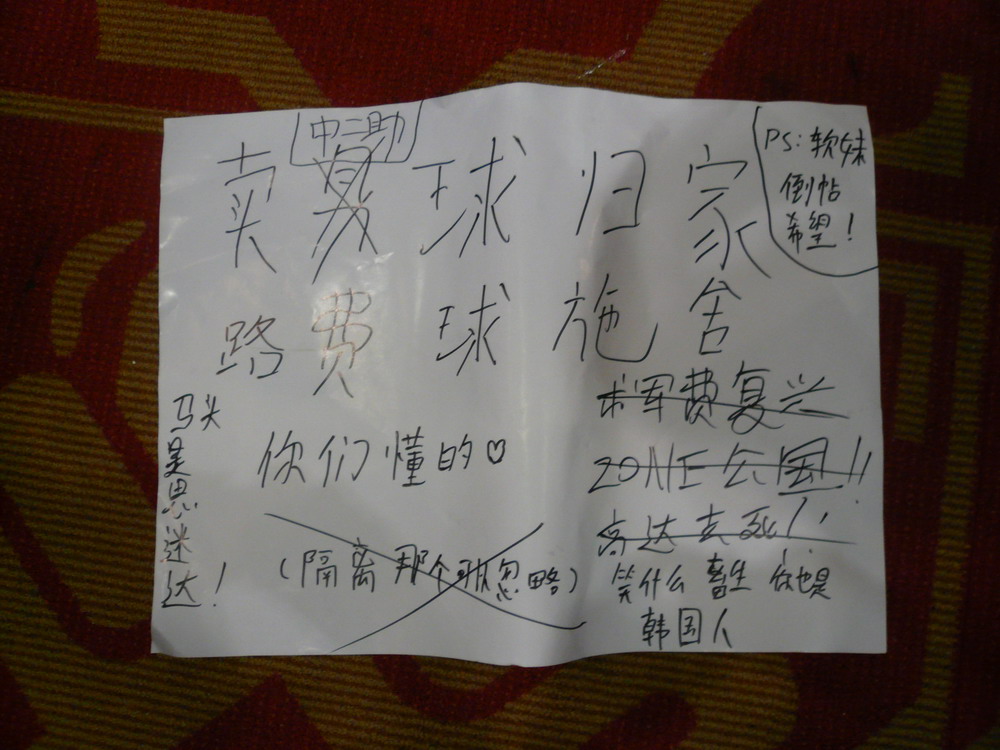 中二助
卖募球归家
PS:软妹
倒帖
希望!
路费球施舍
求军费复兴
ZONE公国!!
高达去死!!
马头是思迷达!
你们懂的♡
(隔离那个 忽略)
笑什么 畜生 你也是
韩国人